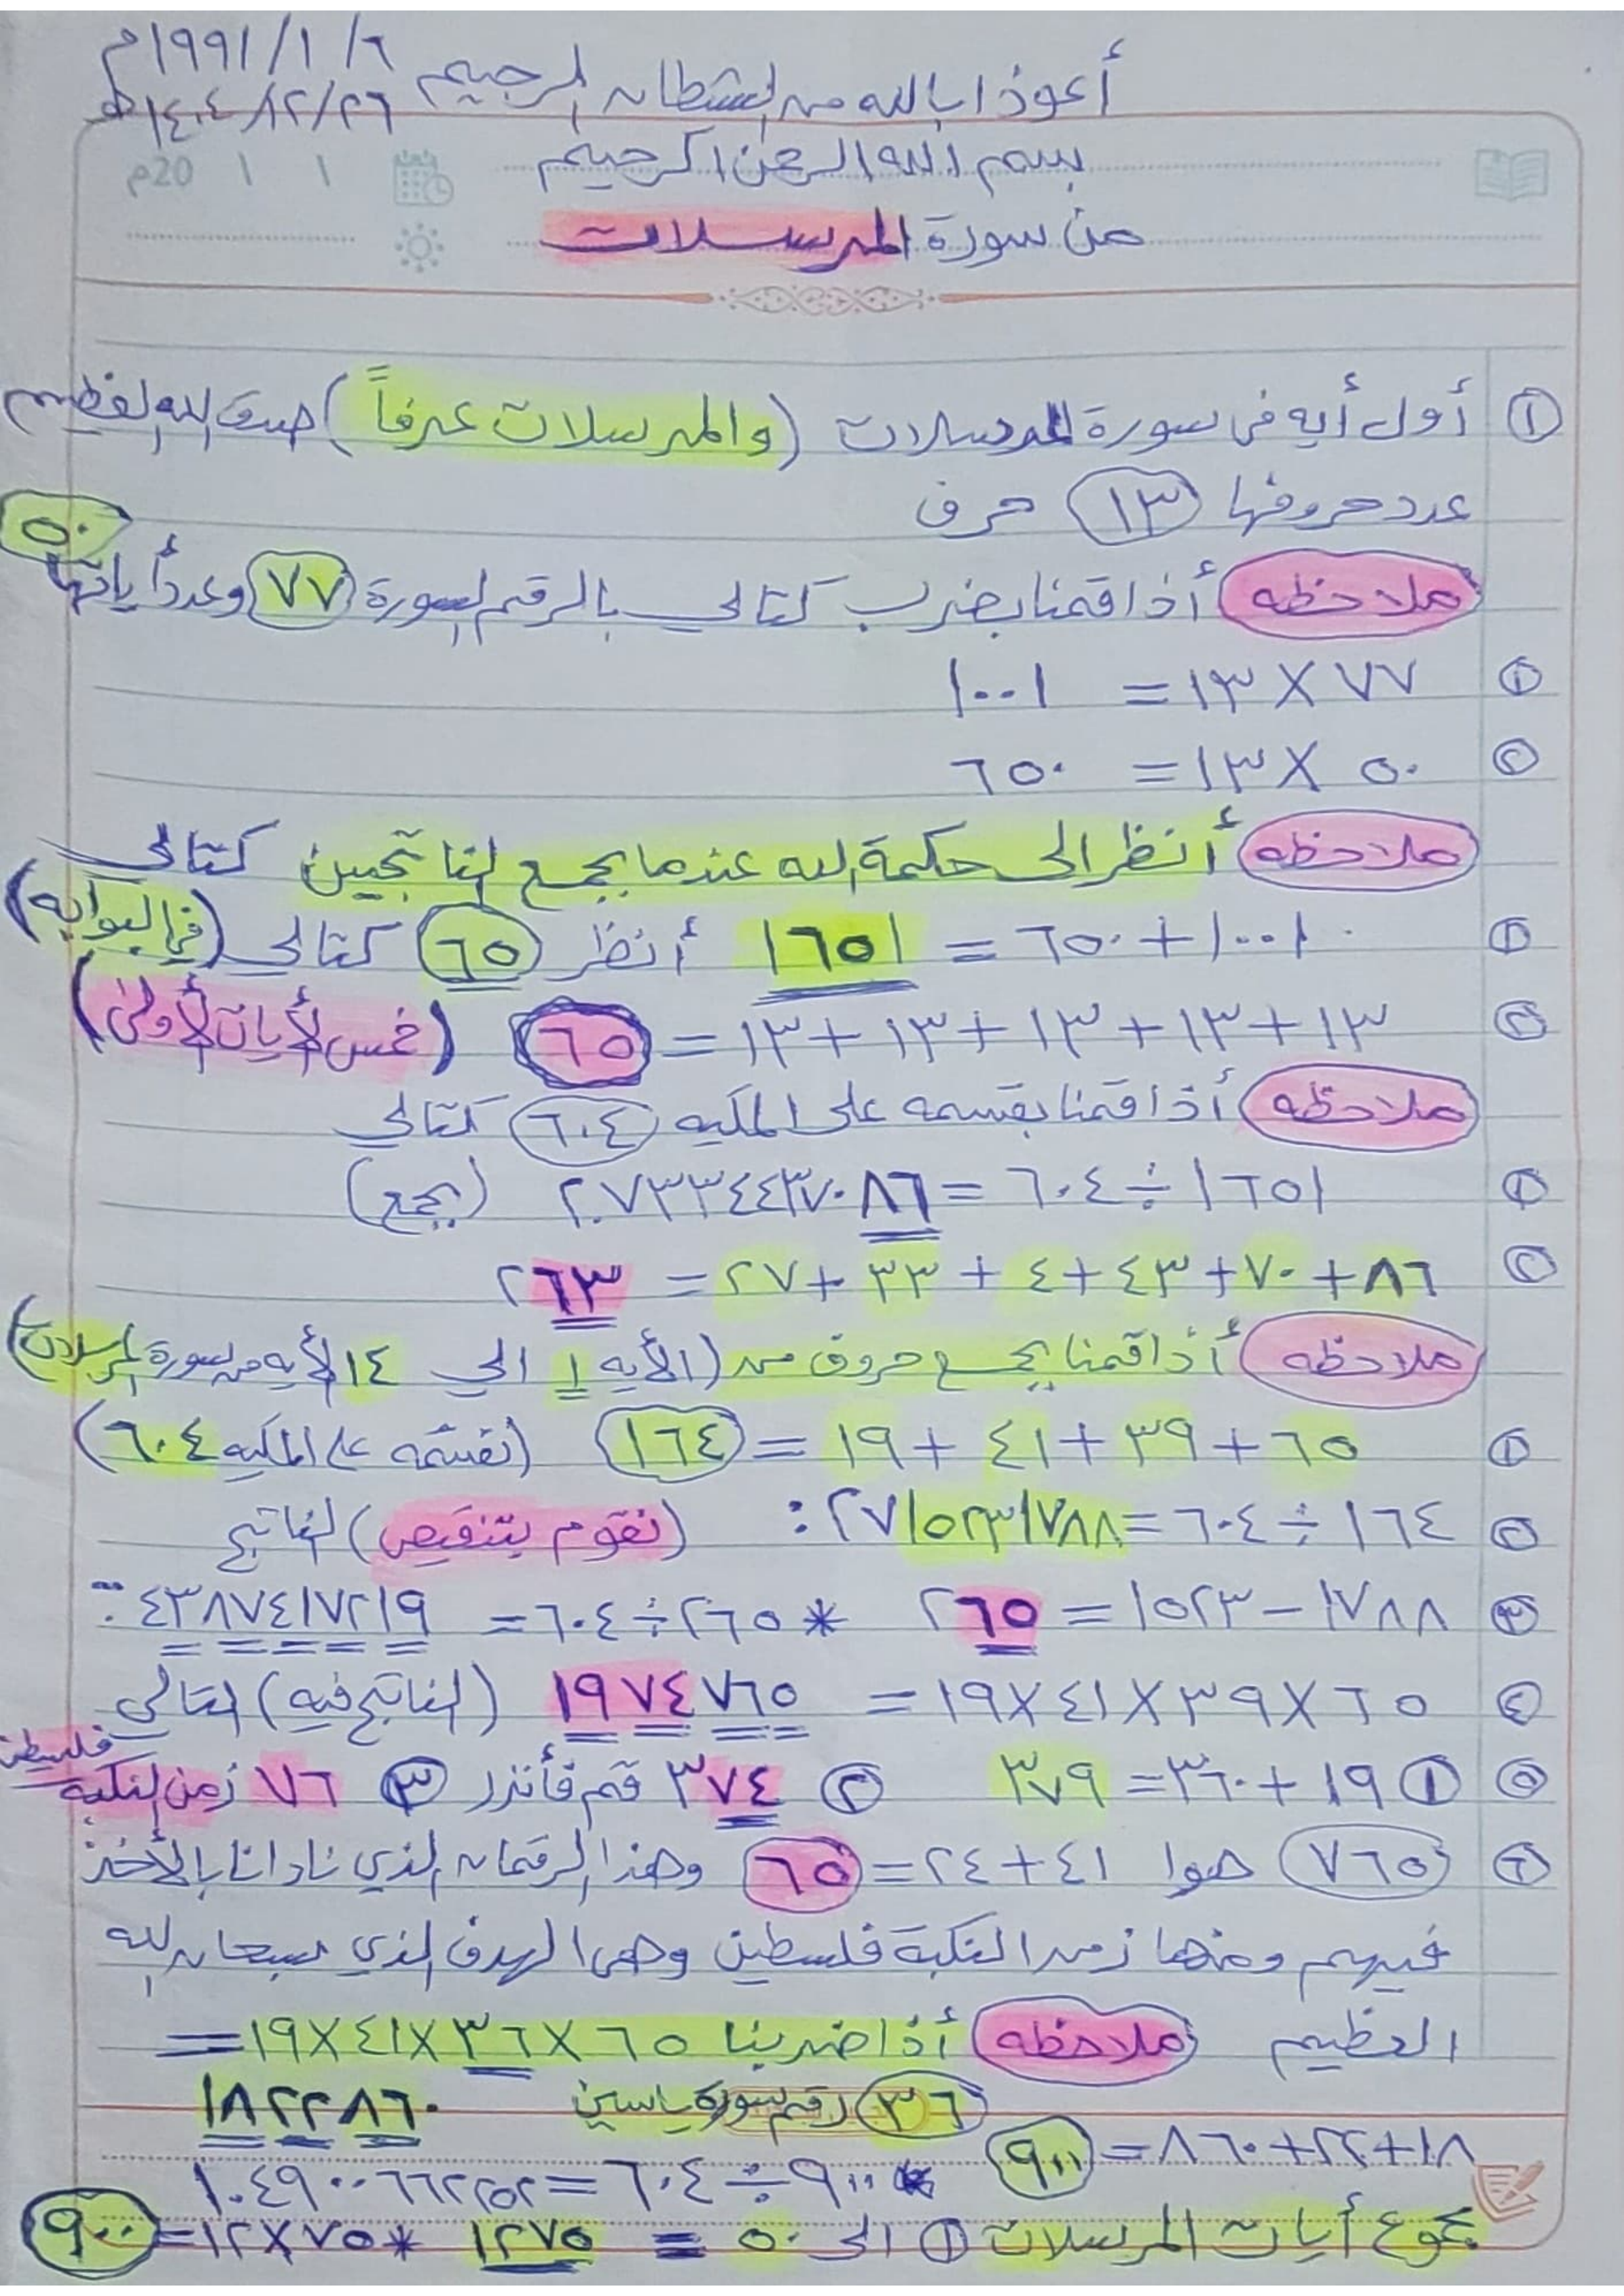 أعوذا بالله من الشطان الرجيم ٦/ ١/ ١٩٩١م
٢٦/ ١٢/ ١٤٠٤هـ
بسم الله الرحمن الرحيم
١ ١ 20م
من سورة المرسلات
① أول أيه في سورة المرسلات (والمرسلات عرفاً) صدق الله العظيم
عدد حروفها ١٣ حرف
ملاحظه أذا قمنا بضرب كتالي بالرقم السورة ٧٧ وعدد أياتها ٥٠
① ٧٧ × ١٣ = ١٠٠١
② ٥٠ × ١٣ = ٦٥٠
ملاحظه أنظر الى حكمة الله عندما يجمع الناتجين كتالي
① ١٠٠١ + ٦٥٠ = ١٦٥١ أنظر ٦٥ كتالي (في البوابه)
② ١٣ + ١٣ + ١٣ + ١٣ + ١٣ = ٦٥ (خمس الأيات الأولئ)
ملاحظه أذا قمنا بقسمه على المكيه ٦٠٤ كتالي
① ١٦٥١ ÷ ٦٠٤ = ٢.٧٣٣٤٤٣٧٠٨٦ (يجمع)
② ٨٦ + ٧٠ + ٤٣ + ٤ + ٣٣ + ٢٧ = ٢٦٣
ملاحظه أذا قمنا بجمع حروف من (الأيه ١ الي ١٤ الأيه من سورة المرسلات)
① ٦٥ + ٣٩ + ٤١ + ١٩ = ١٦٤ (نقسمه على المكيه ٦٠٤)
② ١٦٤ ÷ ٦٠٤ = ٢٧١٥٢٣١٧٨٨: (نقوم بتنقيص) الناتج
③ ١٧٨٨ - ١٥٢٣ = ٢٦٥ * ٢٦٥ ÷ ٦٠٤ = ٤٣٨٧٤١٧٢١٩
④ ٦٥ × ٣٩ × ٤١ × ١٩ = ١٩٧٤٧٦٥ (الناتج فيه) التالي
⑤ ① ١٩ + ٣٦٠ = ٣٧٩ ② ٣٧٤ قم فأنذر ③ ٧٦ زمن النكبه فلسطين
⑥ ٧٦٥ هوا ٤١ + ٢٤ = ٦٥ وهذا الرقمان الذي نادانا بالأخذ
فيهم ومنها زمن النكبة فلسطين وهي الهدف الذي سبحان الله
العظيم ملاحظه أذا ضربنا ٦٥ × ٣٦ × ٤١ × ١٩ =
٣٦ رقم سورة ياسين ١٨٢٢٨٦٠
١٨ + ٢٢ + ٨٦٠ = ٩٠٠
* ٩٠٠ ÷ ٦٠٤ = ١.٤٩٠٠٦٦٢٢٥٢
مجموع أيات المرسلات ① الى ٥٠ = ١٢٧٥ * ٧٥ × ١٢ = ٩٠٠